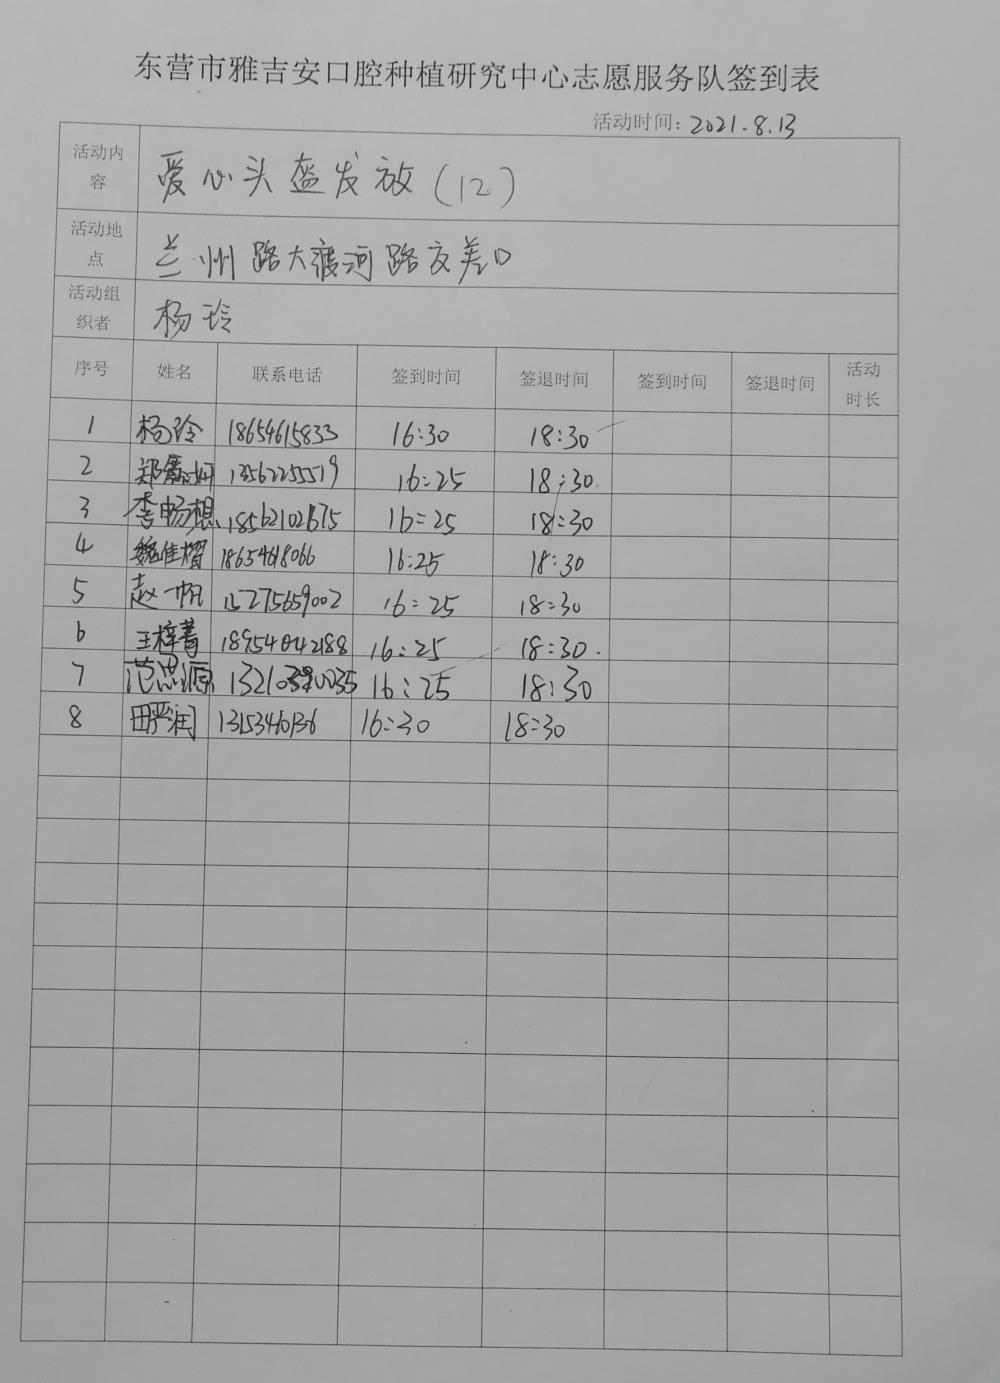 东营市雅吉安口腔种植研究中心志愿服务队签到表
活动时间：2021.8.13
活动内容 爱心头盔发放（12）
活动地点 兰州路大渡河路交差口
活动组织者 杨玲
序号 姓名 联系电话 签到时间 签退时间 签到时间 签退时间 活动时长
1 杨玲 18654615833 16:30 18:30
2 郑 13562255519 16:25 18:30
3 李畅想 16:25 18:30
4 魏佳熠 18654618066 16:25 18:30
5 赵一帆 15275659002 16:25 18:30
6 王梓菁 18954642188 16:25 18:30
7 范思源 16:25 18:30
8 田严润 13153460136 16:30 18:30